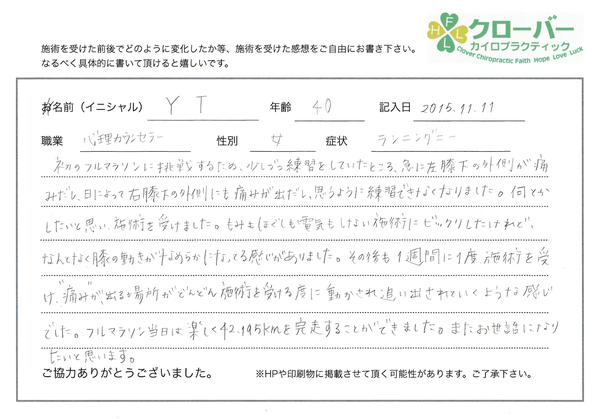 施術を受けた前後でどのように変化したか等、施術を受けた感想をご自由にお書き下さい。
なるべく具体的に書いて頂けると嬉しいです。
FHLL クローバー
カイロプラクティック
Clover Chiropractic Faith Hope Love Luck
お名前（イニシャル） Y T 年齢 40 記入日 2015.11.11
職業 心理カウンセラー 性別 女 症状 ランニングニー
初のフルマラソンに挑戦するため、少しづつ練習をしていたところ、急に左膝下の外側が痛
みだし、日によって右膝下の外側にも痛みが出だし、思うように練習できなくなりました。何とか
したいと思い、施術を受けました。もみもほぐしも電気もしない施術にビックリしたけれど、
なんとなく膝の動きがなめらかになってる感じがありました。その後も1週間に1度施術を受
け、"痛み"が出る場所がどんどん施術を受ける度に動かされ追い出されていくような感じ
でした。フルマラソン当日は楽しく42.195kmを完走することができました。またお世話になり
たいと思います。
ご協力ありがとうございました。 ※HPや印刷物に掲載させて頂く可能性があります。ご了承下さい。